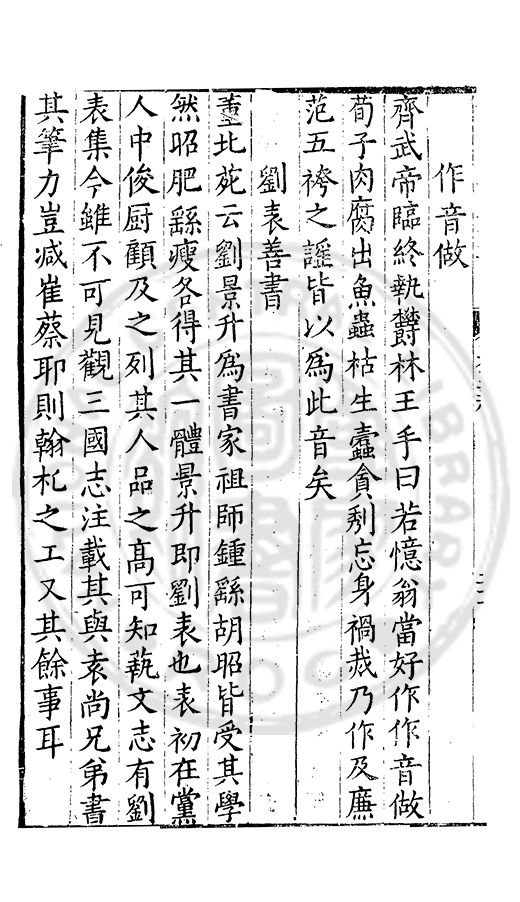 作音做
齊武帝臨終執欝林王手曰若憶翁當好作作音做
荀子肉腐出魚蟲枯生蠹貪利忘身禍烖乃作及廉
范五袴之謡皆以爲此音矣
劉表善書
董北苑云劉景升爲書家祖師鍾繇胡昭皆受其學
然昭肥繇瘦各得其一體景升即劉表也表初在黨
人中俊厨顧及之列其人品之髙可知蓺文志有劉
表集今雖不可見觀三國志注載其與袁尚兄弟書
其筆力豈减崔蔡耶則翰札之工又其餘事耳